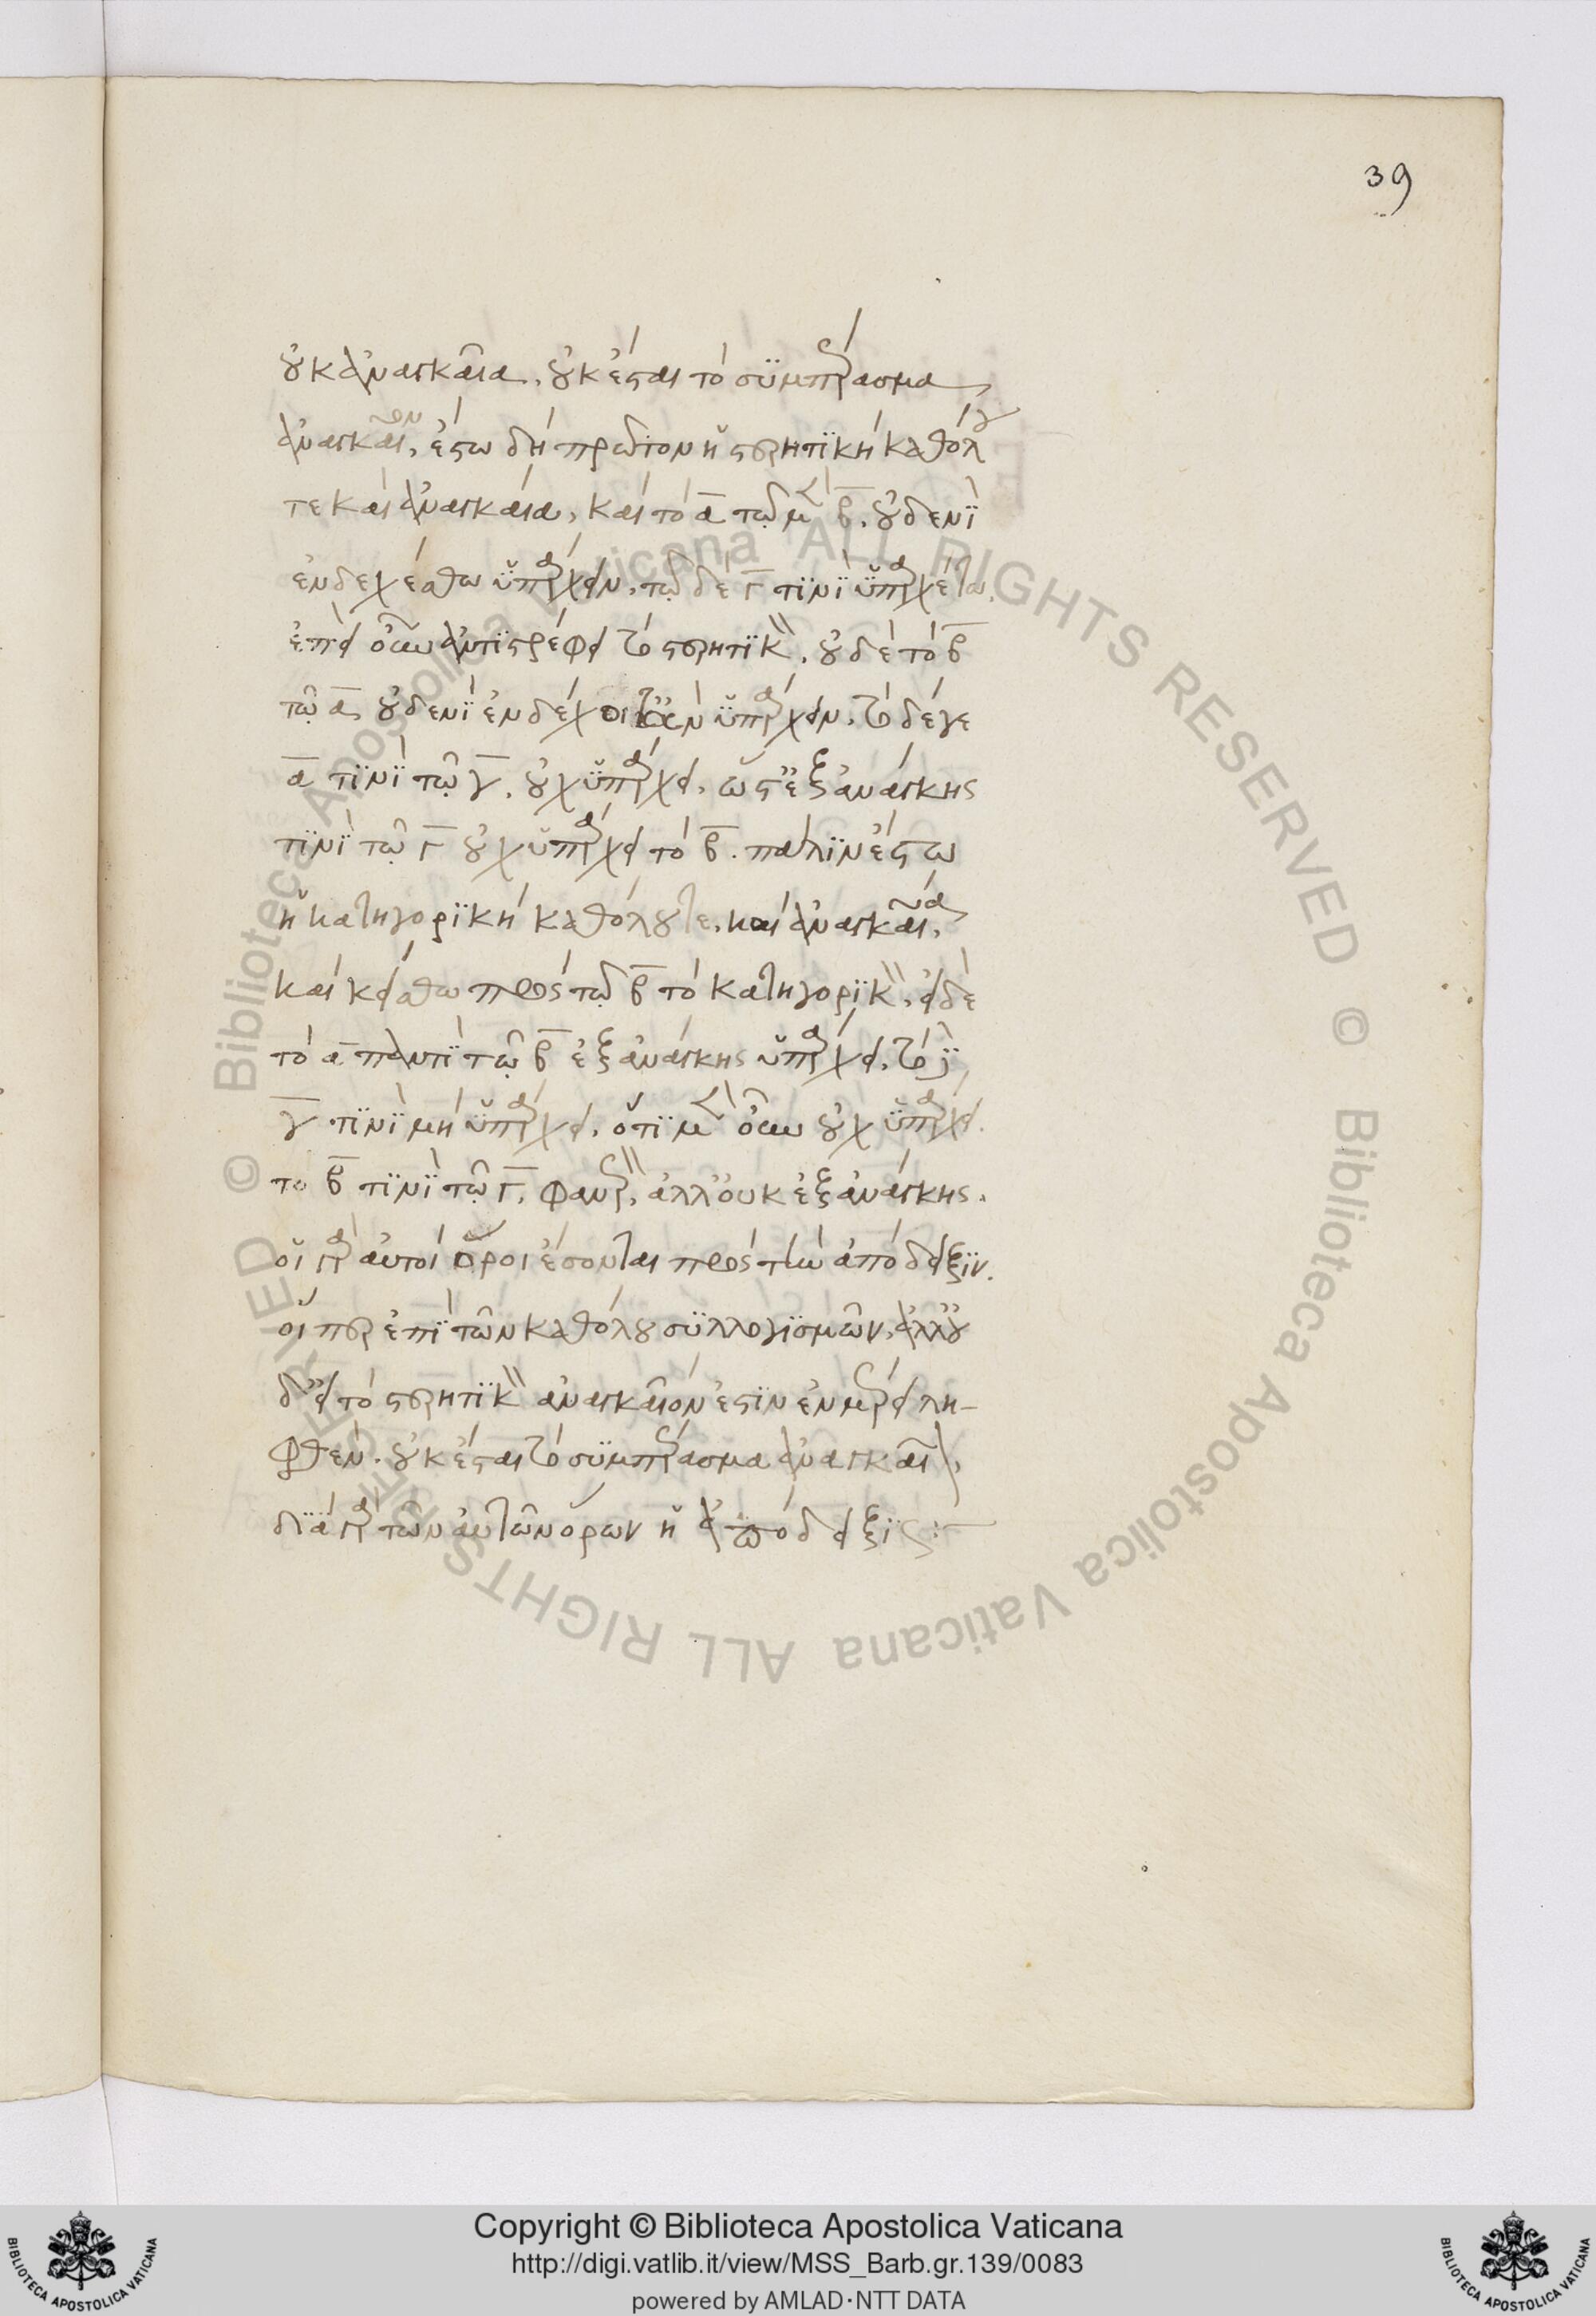 39
οὐκ ἀναγκαία, οὐκ ἔσται τὸ συμπέρασμα
ἀναγκαῖον, ἔστω δὴ πρῶτον ἡ στερητικὴ καθόλου
τε καὶ ἀναγκαία, καὶ τὸ α τῷ μὲν β, οὐδενὶ
ἐνδεχέσθω ὑπάρχειν, τῷ δὲ γ τινὶ ὑπαρχέτω.
ἐπεὶ οὖν ἀντιστρέφει τὸ στερητικὸν, οὐδὲ τὸ β
τῷ α, οὐδενὶ ἐνδέχοιτ' ἂν ὑπάρχειν, τὸ δέ γε
α τινὶ τῷ γ, οὐχ ὑπάρχει, ὥστ' ἐξ ἀνάγκης
τινὶ τῷ γ οὐχ ὑπάρχει τὸ β. πάλιν ἔστω
ἡ κατηγορικὴ καθόλου τε, καὶ ἀναγκαία,
καὶ κείσθω πρὸς τῷ β τὸ κατηγορικὸν, εἰ δὲ
τὸ α παντὶ τῷ β ἐξ ἀνάγκης ὑπάρχει, τῷ
γ τινὶ μὴ ὑπάρχει, ὅτι μὲν οὖν οὐχ ὑπάρχει
το β τινὶ τῷ γ, φανερὸν, ἀλλ' οὐκ ἐξ ἀνάγκης.
οἱ γὰρ αὐτοὶ ὅροι ἔσονται πρὸς τὴν ἀπόδειξιν.
οἵπερ ἐπὶ τῶν καθόλου συλλογισμῶν, ἀλλ' οὐ
δ' εἰ τὸ στερητικὸν ἀναγκαῖόν ἐστιν ἐν μέρει λη-
φθὲν. οὐκ ἔσται τὸ συμπέρασμα ἀναγκαῖον,
διὰ γὰρ τῶν αὐτῶν ὅρων ἡ ἀπόδειξις:
Copyright © Biblioteca Apostolica Vaticana
http://digi.vatlib.it/view/MSS_Barb.gr.139/0083
powered by AMLAD·NTT DATA
BIBLIOTECA APOSTOLICA VATICANA
BIBLIOTECA APOSTOLICA VATICANA
© Biblioteca Apostolica Vaticana ALL RIGHTS RESERVED © Biblioteca Apostolica Vaticana ALL RIGHTS RESERVED